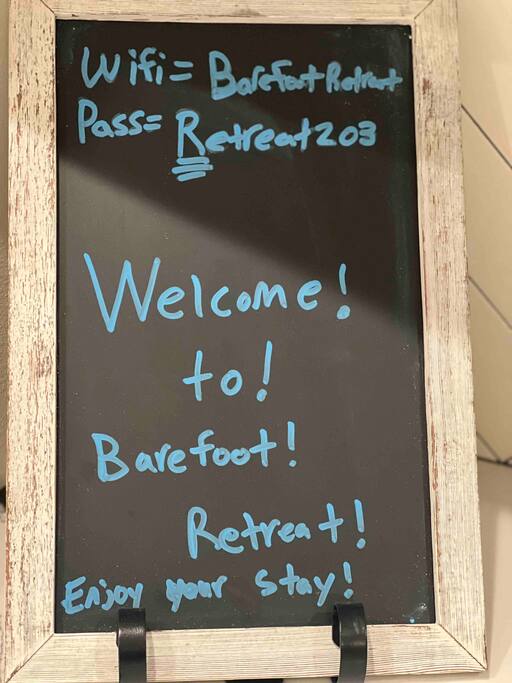 Wifi= Barefoot Retreat
Pass= Retreat203
Welcome!
to!
Barefoot!
Retreat!
Enjoy your stay!